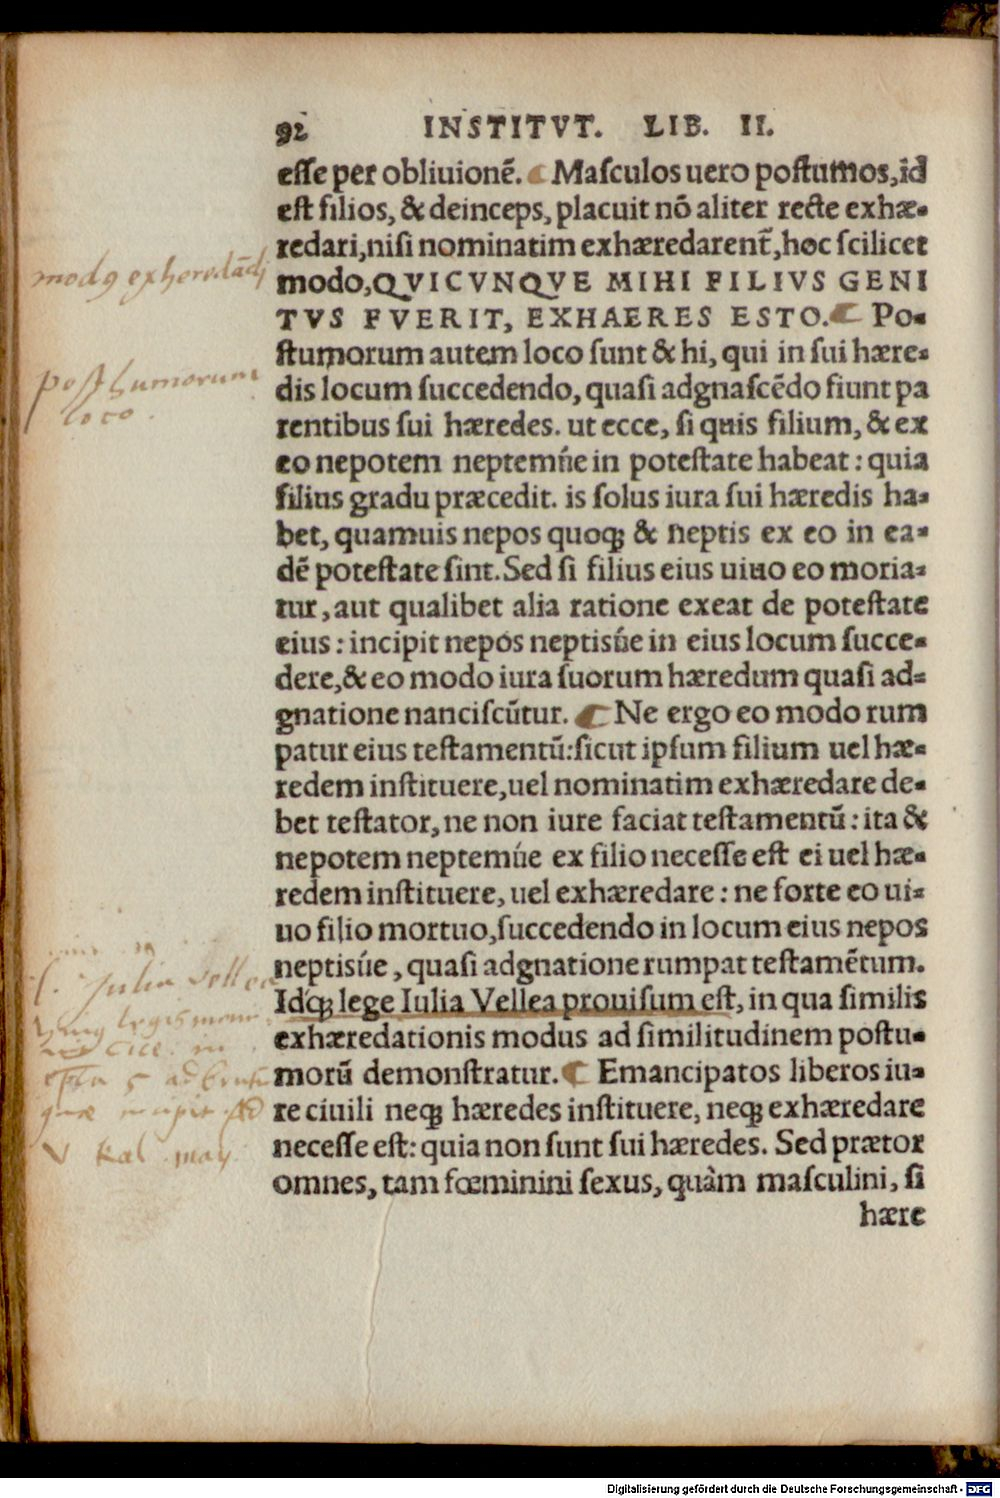 92 INSTITVT. LIB. II.
eſſe per obliuionẽ. Maſculos uero poſtumos, id
eſt filios, & deinceps, placuit nõ aliter recte exhæ-
redari, niſi nominatim exhæredarent̃, hoc ſcilicet
modo, QVICVNQVE MIHI FILIVS GENI
TVS FVERIT, EXHAERES ESTO. Po-
ſtumorum autem loco ſunt & hi, qui in ſui hære-
dis locum ſuccedendo, quaſi adgnaſcẽdo fiunt pa
rentibus ſui hæredes. ut ecce, ſi quis filium, & ex
eo nepotem neptemúe in poteſtate habeat : quia
filius gradu præcedit. is ſolus iura ſui hæredis ha-
bet, quamuis nepos quoqꝫ & neptis ex eo in ea-
dẽ poteſtate ſint. Sed ſi filius eius uiuo eo moria-
tur, aut qualibet alia ratione exeat de poteſtate
eius : incipit nepos neptisúe in eius locum ſucce-
dere, & eo modo iura ſuorum hæredum quaſi ad-
gnatione nanciſcũtur. Ne ergo eo modo rum
patur eius teſtamentũ: ſicut ipſum filium uel hæ-
redem inſtituere, uel nominatim exhæredare de-
bet teſtator, ne non iure faciat teſtamentũ : ita &
nepotem neptemúe ex filio neceſſe eſt ei uel hæ-
redem inſtituere, uel exhæredare : ne forte eo ui-
uo filio mortuo, ſuccedendo in locum eius nepos
neptisúe, quaſi adgnatione rumpat teſtamẽtum.
Idqꝫ lege Iulia Vellea prouiſum eſt, in qua ſimilis
exhæredationis modus ad ſimilitudinem poſtu-
morũ demonſtratur. Emancipatos liberos iu-
re ciuili neqꝫ hæredes inſtituere, neqꝫ exhæredare
neceſſe eſt: quia non ſunt ſui hæredes. Sed prætor
omnes, tam fœminini ſexus, quàm maſculini, ſi
hære
modꝰ exheredãdi
posthumorum
loco.
l. Julia Velle
legis
cice. in
epla 5 ad
quæ incipit
V kal. may
Digitalisierung gefördert durch die Deutsche Forschungsgemeinschaft - DFG